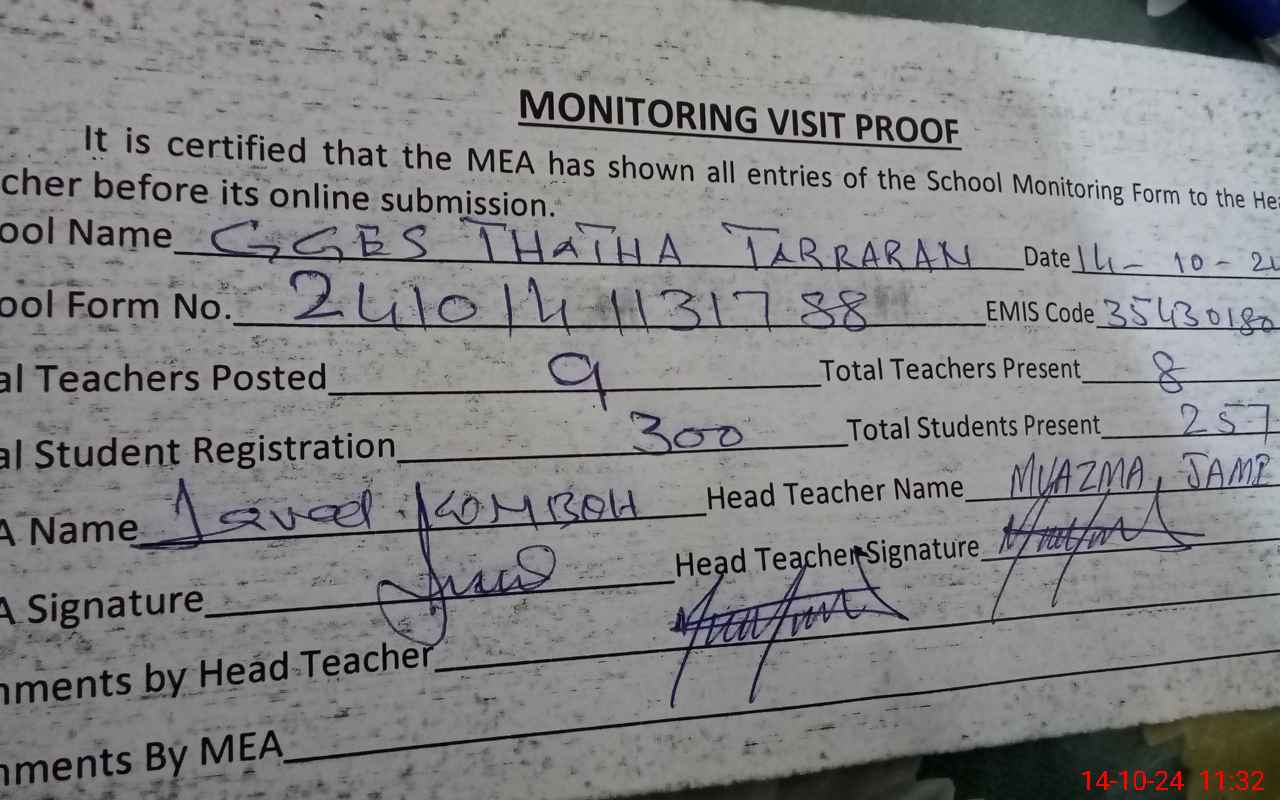 MONITORING VISIT PROOF
It is certified that the MEA has shown all entries of the School Monitoring Form to the Hea
cher before its online submission.
ool Name GGES THATHA TARRARAN Date 14-10-24
ool Form No. 24101411131788 EMIS Code 35430180
al Teachers Posted 9 Total Teachers Present 8
al Student Registration 300 Total Students Present 257
A Name Javed KOMBOH Head Teacher Name MUAZMA JAMI
A Signature Head Teacher Signature
mments by Head Teacher
mments By MEA
14-10-24 11:32